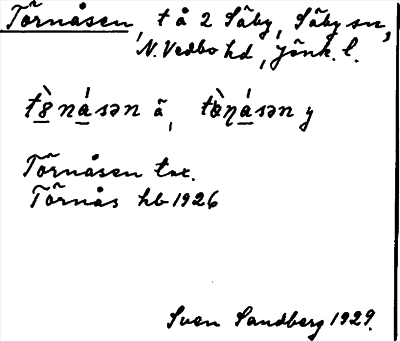 Törnåsen, t å 2 Säby, Säby sn,
N. Vedbo hd, Jönk. l.
tȍ̱ná̱sən ä, tœ̀ɳá̱sən y
Törnåsen tax.
Törnås hb 1926
Sven Sandberg 1929.